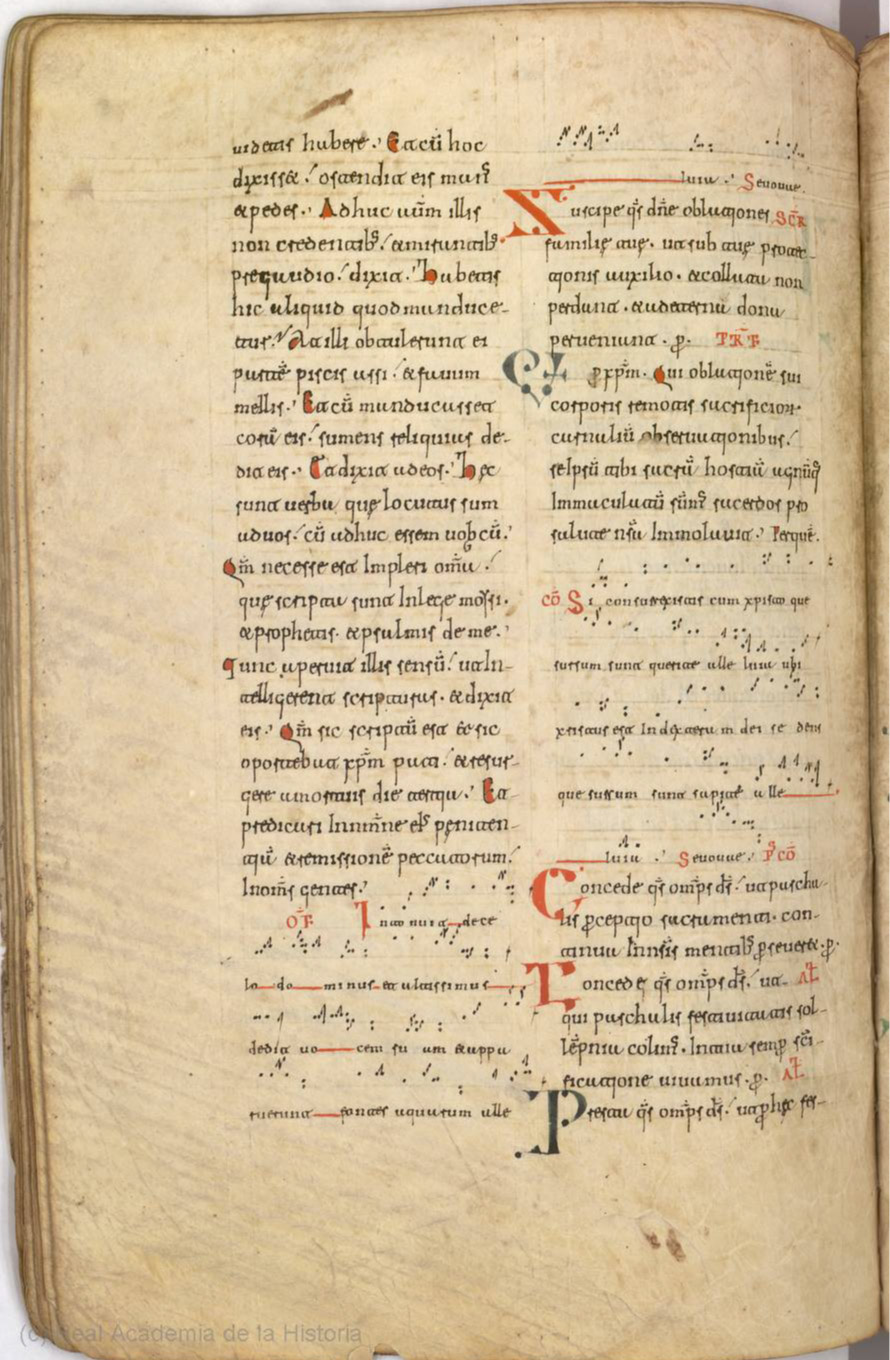 uidetis habere. Et cū hoc
dixisset ostendit eis man᷒
et pedes. Adhuc autem illis
non credentib; et mirantib;
pre gaudio dixit. Habetis
hic aliquid quod manduce-
tur. At illi obtulerunt ei
partē piscis assi et fauum
mellis. Et cū manducasset
corā eis sumens reliquias de-
dit eis. Et dixit ad eos. Hęc
sunt uerba quę locutus sum
ad uos cū adhuc essem uobcū.
Qm̄ necesse est Impleri om̄a
quę scripta sunt In lege mosi.
et prophetis. et psalmis de me.
Tunc aperuit illis sensū ut In-
telligerent scripturas. et dixit
eis. Qm̄ sic scriptū est et sic
oportebat xp̄m pati et resur-
gere a mortuis die tertia. Et
predicari In nomine eī penitentiā
et remissionē peccatorum
In om̄s gentes.
OF̄ Intonuit de ce
lo do minus et altissimus
dedit uo cem su am et appa
ruerunt fontes aquarum alle
luia. Seuouae.
Suscipe qs dn̄e oblationes SCR̄
familię tuę. ut sub tuę protec-
tionis auxilio. et collata non
perdant. et ad eterna dona
perueniant. p.
Et p xp̄m. Qui oblationē sui
corporis remotis sacrificiorum
carnaliū obseruationibus
seipsū tibi sacrā hostiā agnūq
Immaculatū sūm᷒ sacerdos pro
salute nr̄a Immolauit. Per quē.
cō Si consurrexistis cum xpisto que
sursum sunt querite alle luia ubi
xristus est In dextera m dei se dens
que sursum sunt sapite a lle
luia. Seuouae. P cō
Concede qs om̄ps ds̄ ut pascha-
lis pceptio sacramenti. con-
tinua In nr̄is mentib; pseueret. p.
Concede qs om̄ps ds̄ ut AL̄
qui paschalis festiuitatis sol-
lēpnia colim᷒. In tua semp sc̄i-
ficatione uiuamus. p. AL̄
Presta qs om̄ps ds̄ ut p hęc fes-
(c) Real Academia de la Historia